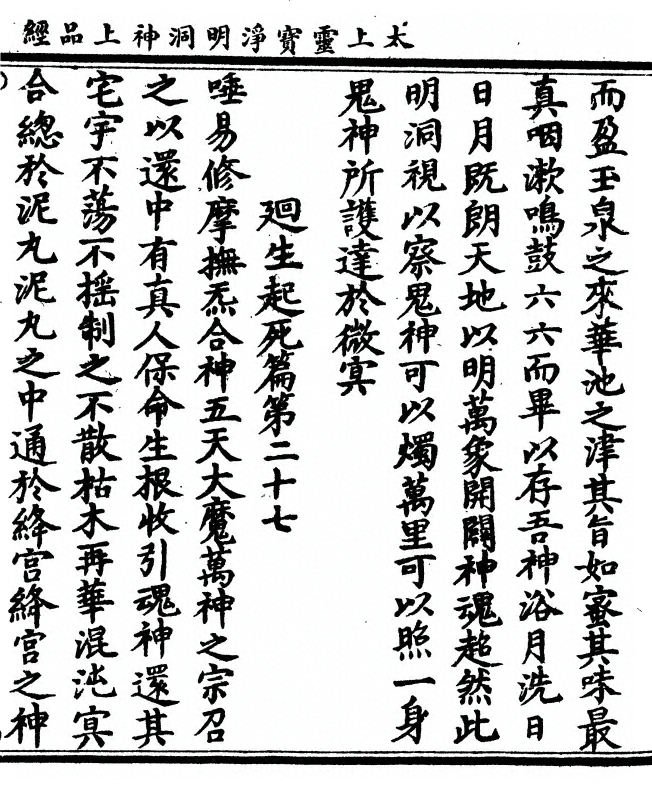 太上靈寶淨明洞神上品經
而盈玉泉之來華池之津其旨如蜜其味最
真咽漱鳴鼓六六而畢以存吾神浴月洗日
日月既朗天地以明萬象開闢神魂超然此
明洞視以察鬼神可以燭萬里可以照一身
鬼神所護達於微冥
廻生起死篇第二十七
唾易修摩撫炁合神五天大魔萬神之宗召
之以還中有真人保命生根收引魂神還其
宅宇不蕩不揺制之不散枯木再華混沌冥
合總於泥丸泥丸之中通於絳宫絳宫之神